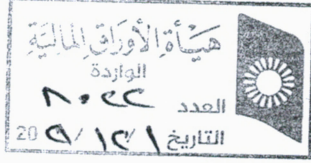 هيأة الأوراق المالية
الواردة
العدد ٨٠٢٢
التاريخ ١/١٢/٢٠٢٩